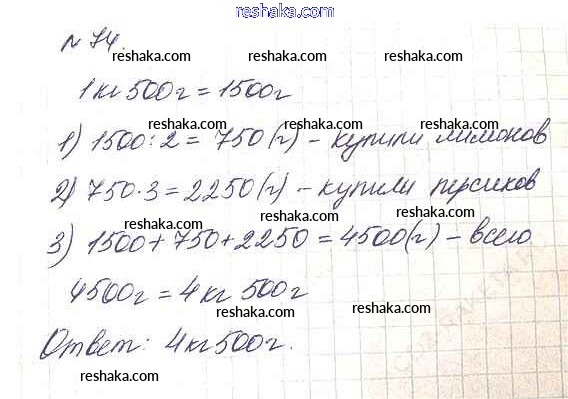 reshaka.com
№ 74. reshaka.com reshaka.com
1 кг 500 г = 1500 г
reshaka.com reshaka.com
1) 1500 : 2 = 750 (г) – купили лимонов
reshaka.com reshaka.com
2) 750 · 3 = 2250 (г) – купили персиков
reshaka.com reshaka.com
3) 1500 + 750 + 2250 = 4500 (г) – всего
reshaka.com reshaka.com
4500 г = 4 кг 500 г
reshaka.com reshaka.com
Ответ: 4 кг 500 г.
reshaka.com reshaka.com